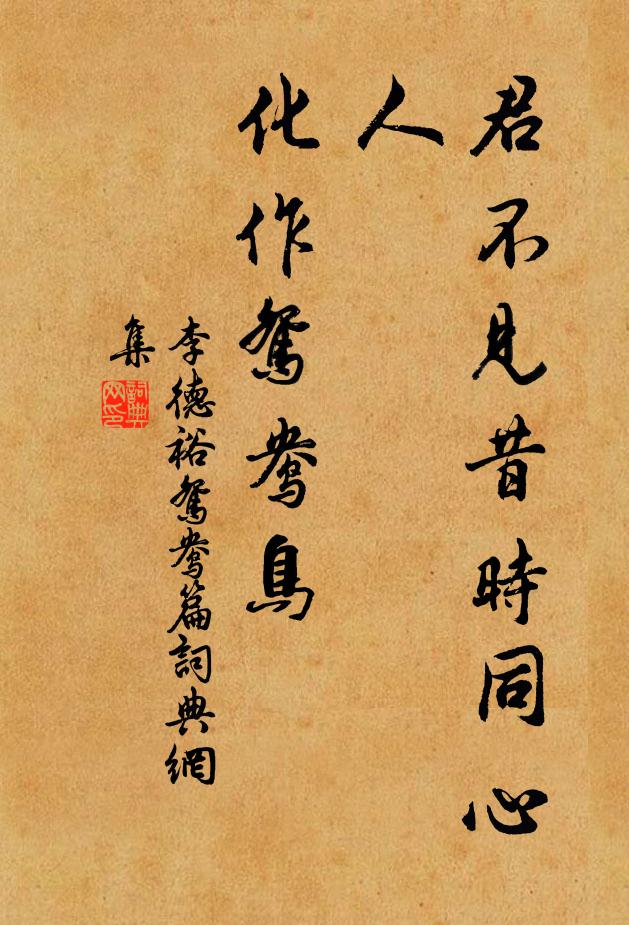 君不見昔時同心
人
化作鴛鴦鳥
李德裕鴛鴦篇詞典網
集
詞典網印